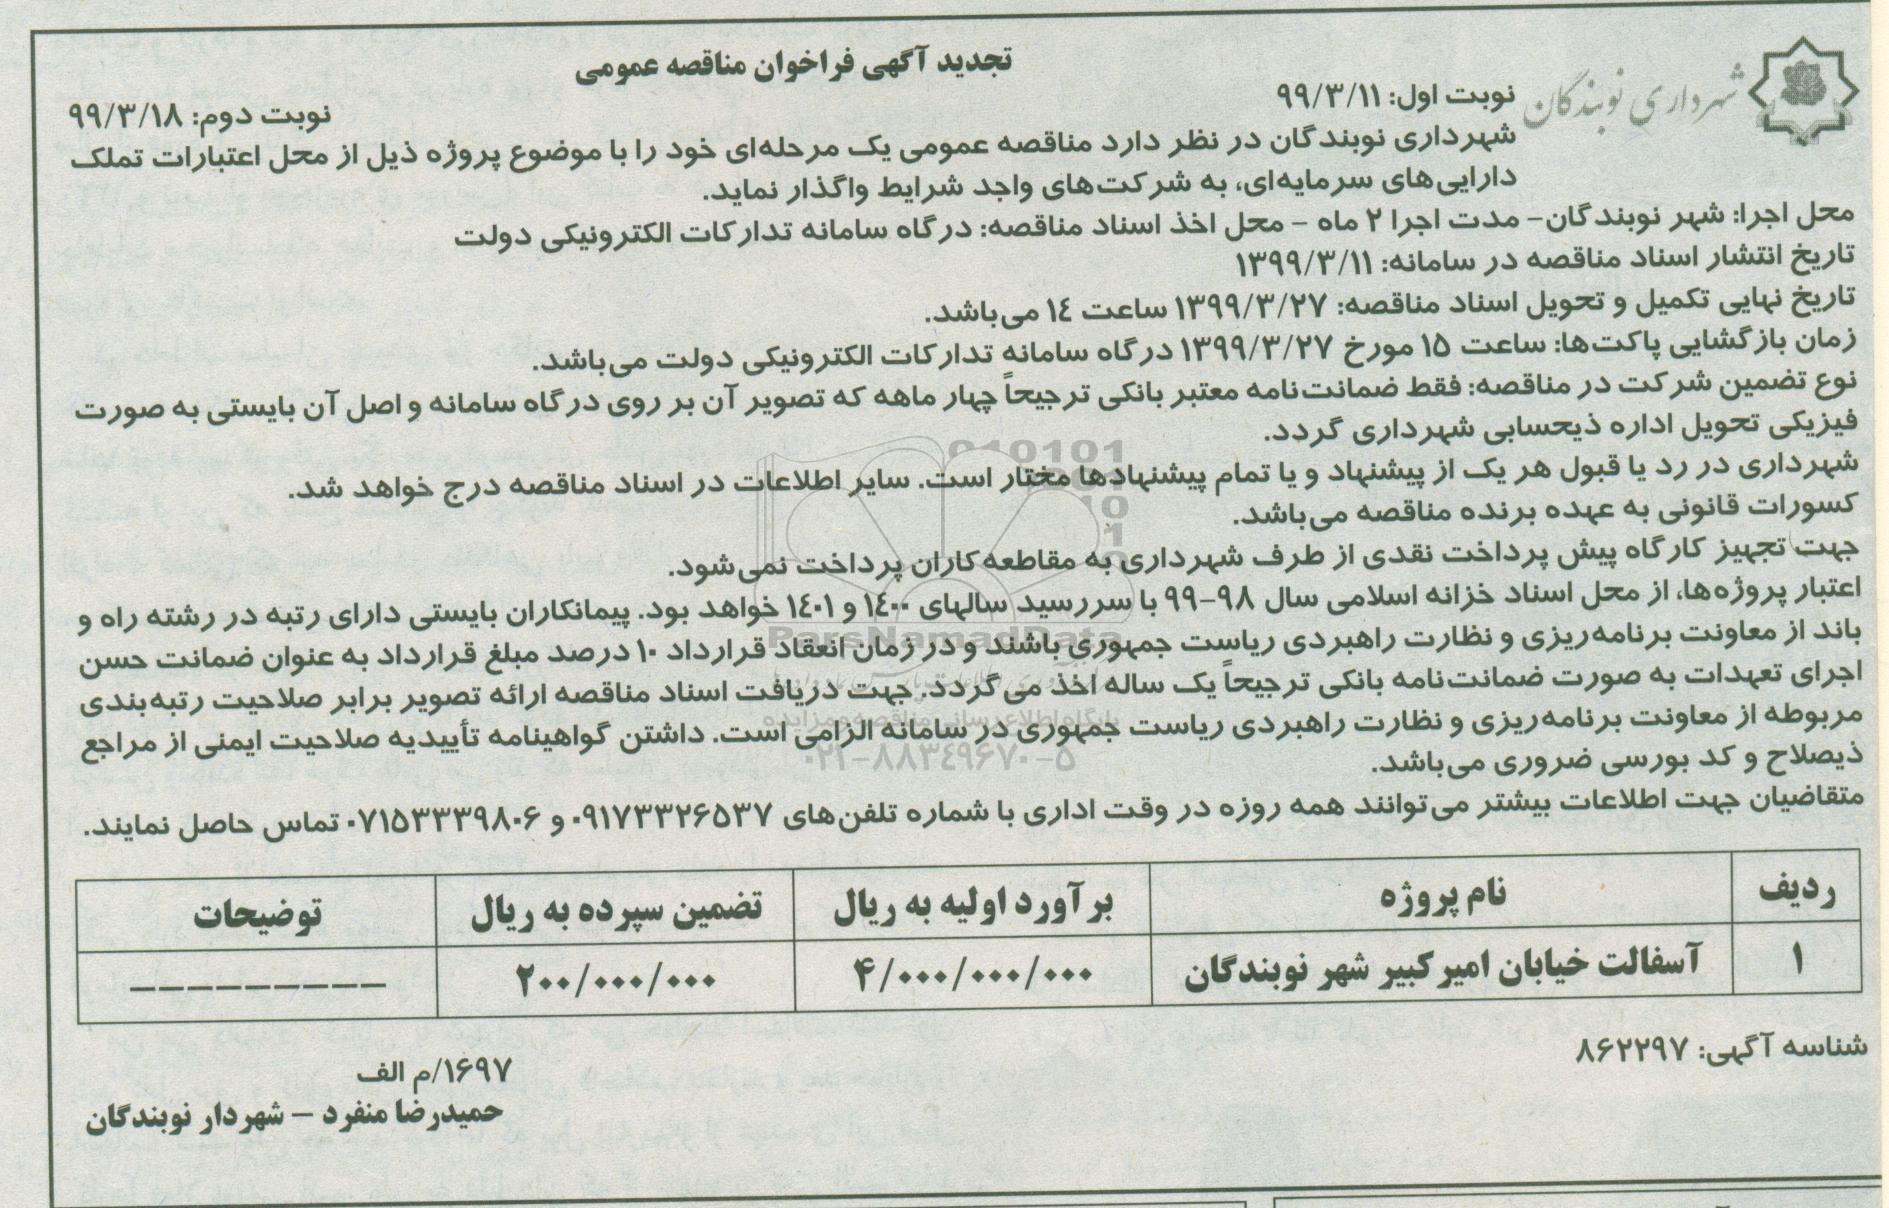 شهرداری نوبندگان
تجدید آگهی فراخوان مناقصه عمومی
نوبت اول: ۹۹/۳/۱۱
نوبت دوم: ۹۹/۳/۱۸
شهرداری نوبندگان در نظر دارد مناقصه عمومی یک مرحله‌ای خود را با موضوع پروژه ذیل از محل اعتبارات تملک
دارایی‌های سرمایه‌ای، به شرکت‌های واجد شرایط واگذار نماید.
محل اجرا: شهر نوبندگان– مدت اجرا ۲ ماه – محل اخذ اسناد مناقصه: درگاه سامانه تدارکات الکترونیکی دولت
تاریخ انتشار اسناد مناقصه در سامانه: ۱۳۹۹/۳/۱۱
تاریخ نهایی تکمیل و تحویل اسناد مناقصه: ۱۳۹۹/۳/۲۷ ساعت ۱۴ می‌باشد.
زمان بازگشایی پاکت‌ها: ساعت ۱۵ مورخ ۱۳۹۹/۳/۲۷ درگاه سامانه تدارکات الکترونیکی دولت می‌باشد.
نوع تضمین شرکت در مناقصه: فقط ضمانت‌نامه معتبر بانکی ترجیحاً چهار ماهه که تصویر آن بر روی درگاه سامانه و اصل آن بایستی به صورت
فیزیکی تحویل اداره ذیحسابی شهرداری گردد.
شهرداری در رد یا قبول هر یک از پیشنهاد و یا تمام پیشنهادها مختار است. سایر اطلاعات در اسناد مناقصه درج خواهد شد.
کسورات قانونی به عهده برنده مناقصه می‌باشد.
جهت تجهیز کارگاه پیش پرداخت نقدی از طرف شهرداری به مقاطعه‌کاران پرداخت نمی‌شود.
اعتبار پروژه‌ها، از محل اسناد خزانه اسلامی سال ۹۸–۹۹ با سررسید سالهای ۱۴۰۰ و ۱۴۰۱ خواهد بود. پیمانکاران بایستی دارای رتبه در رشته راه و
باند از معاونت برنامه‌ریزی و نظارت راهبردی ریاست جمهوری باشند و در زمان انعقاد قرارداد ۱۰ درصد مبلغ قرارداد به عنوان ضمانت حسن
اجرای تعهدات به صورت ضمانت‌نامه بانکی ترجیحاً یک ساله اخذ می‌گردد. جهت دریافت اسناد مناقصه ارائه تصویر برابر صلاحیت رتبه‌بندی
مربوطه از معاونت برنامه‌ریزی و نظارت راهبردی ریاست جمهوری در سامانه الزامی است. داشتن گواهینامه تأییدیه صلاحیت ایمنی از مراجع
ذیصلاح و کد بورسی ضروری می‌باشد.
متقاضیان جهت اطلاعات بیشتر می‌توانند همه روزه در وقت اداری با شماره تلفن‌های ۰۹۱۷۳۳۲۶۵۳۷ و ۰۷۱۵۳۳۳۹۸۰۶ تماس حاصل نمایند.
ردیف نام پروژه برآورد اولیه به ریال تضمین سپرده به ریال توضیحات
۱ آسفالت خیابان امیرکبیر شهر نوبندگان ۴/۰۰۰/۰۰۰/۰۰۰ ۲۰۰/۰۰۰/۰۰۰ ––––––––––
شناسه آگهی: ۸۶۲۲۹۷
۱۶۹۷/م الف
حمیدرضا منفرد – شهردار نوبندگان
ParsNamadData
پایگاه اطلاع‌رسانی مناقصه و مزایده
۰۲۱–۸۸۳۴۹۶۷۰–۵